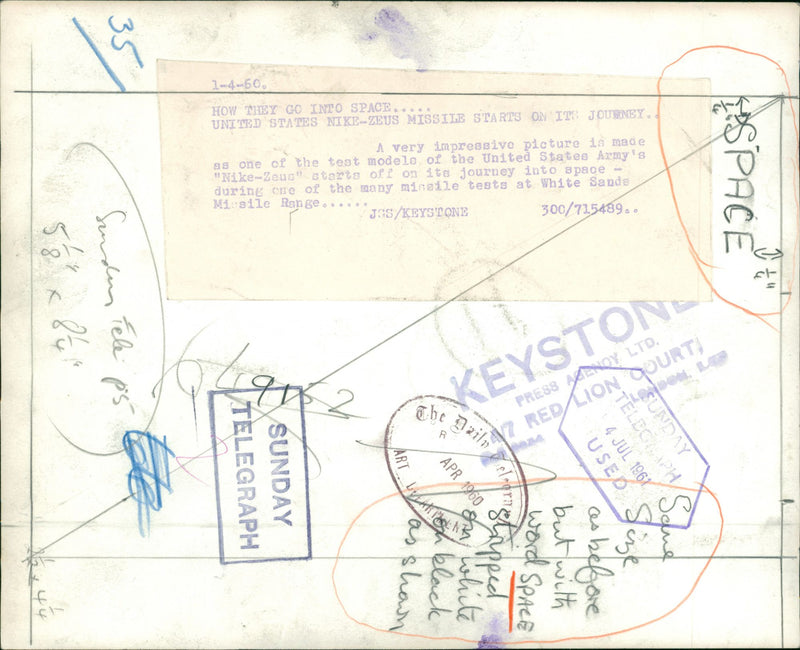 35
1-4-60.
HOW THEY GO INTO SPACE.....
UNITED STATES NIKE-ZEUS MISSILE STARTS ON ITS JOURNEY..
A very impressive picture is made
as one of the test models of the United States Army's
"Nike-Zeus" starts off on its journey into space -
during one of the many missile tests at White Sands
Missile Range......
JSS/KEYSTONE 300/715489..
SPACE
1/4"
Sunday Tele p5
5 1/8" x 8 1/4"
KEYSTONE
PRESS AGENCY LTD.
RED LION COURT
SUNDAY
TELEGRAPH
4 JUL 1961
USED
The Daily Telegraph
R
APR 1960
ART DEPARTMENT
SUNDAY
TELEGRAPH
Same
Size
as before
but with
word SPACE
stripped
on white
on black
as shown